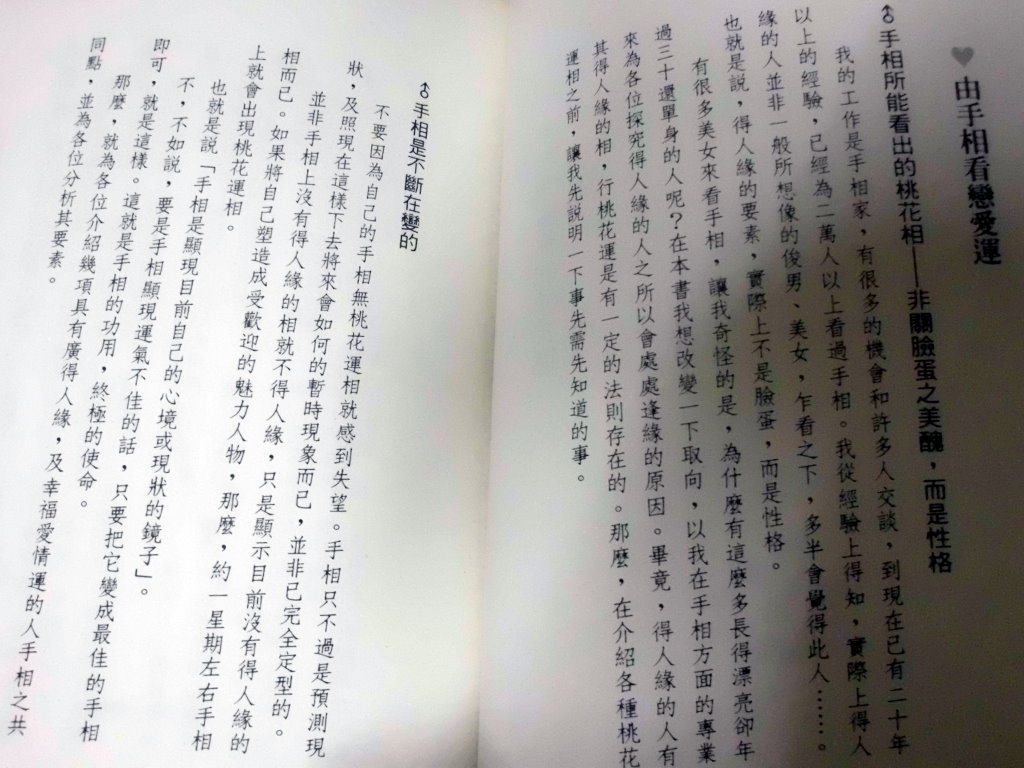 由手相看戀愛運
手相所能看出的桃花相——非關臉蛋之美醜，而是性格
我的工作是手相家，有很多的機會和許多人交談，到現在已有二十年
以上的經驗，已經為二萬人以上看過手相。我從經驗上得知，實際上得人
緣的人並非一般所想像的俊男、美女，乍看之下，多半會覺得此人……。
也就是說，得人緣的要素，實際上不是臉蛋，而是性格。
有很多美女來看手相，讓我奇怪的是，為什麼有這麼多長得漂亮卻年
過三十還單身的人呢？在本書我想改變一下取向，以我在手相方面的專業
來為各位探究得人緣的人之所以會處處逢緣的原因。畢竟，得人緣的人有
其得人緣的相，行桃花運是有一定的法則存在的。那麼，在介紹各種桃花
運相之前，讓我先說明一下事先需先知道的事。
手相是不斷在變的
不要因為自己的手相無桃花運相就感到失望。手相只不過是預測現
狀，及照現在這樣下去將來會如何的暫時現象而已，並非已完全定型的。
並非手相上沒有得人緣的相就不得人緣，只是顯示目前沒有得人緣的
相而已。如果將自己塑造成受歡迎的魅力人物，那麼，約一星期左右手相
上就會出現桃花運相。
也就是說「手相是顯現目前自己的心境或現狀的鏡子」。
不，不如說，要是手相顯現運氣不佳的話，只要把它變成最佳的手相
即可，就是這樣。這就是手相的功用，終極的使命。
那麼，就為各位介紹幾項具有廣得人緣，及幸福愛情運的人手相之共
同點，並為各位分析其要素。